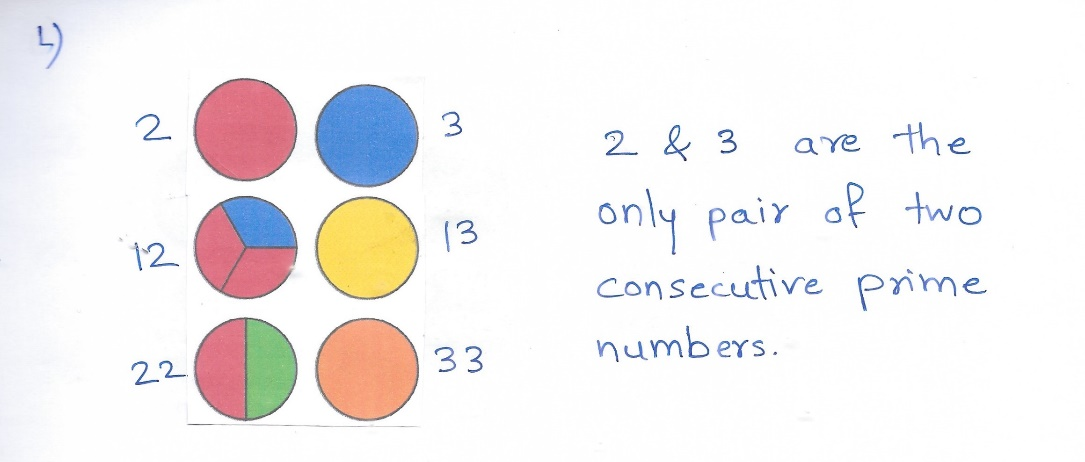 1)
2 3
12 13
22 33
2 & 3 are the
only pair of two
consecutive prime
numbers.